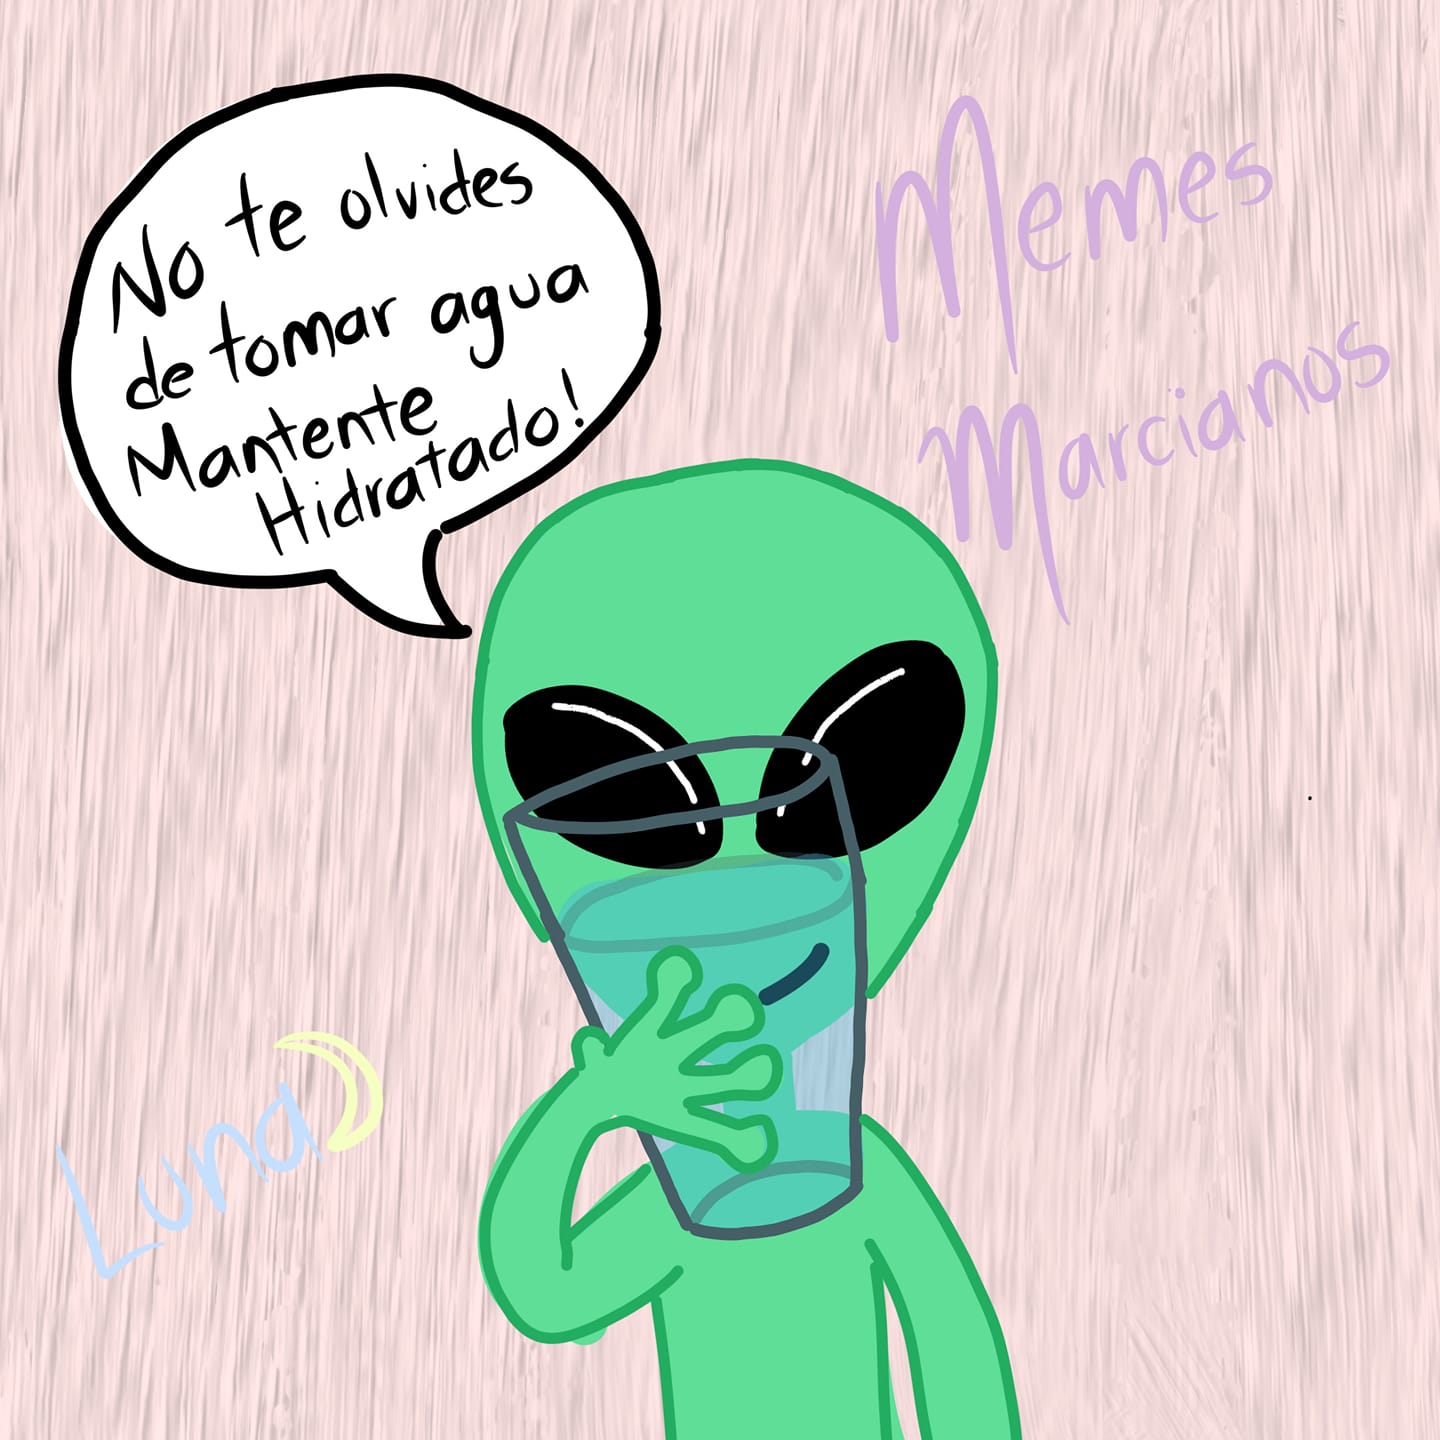 No te olvides
de tomar agua
Mantente
Hidratado!
Memes
Marcianos
Luna